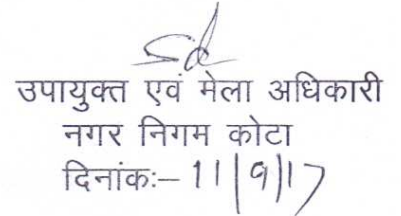 Sd
उपायुक्त एवं मेला अधिकारी
नगर निगम कोटा
दिनांकः– 11/9/17